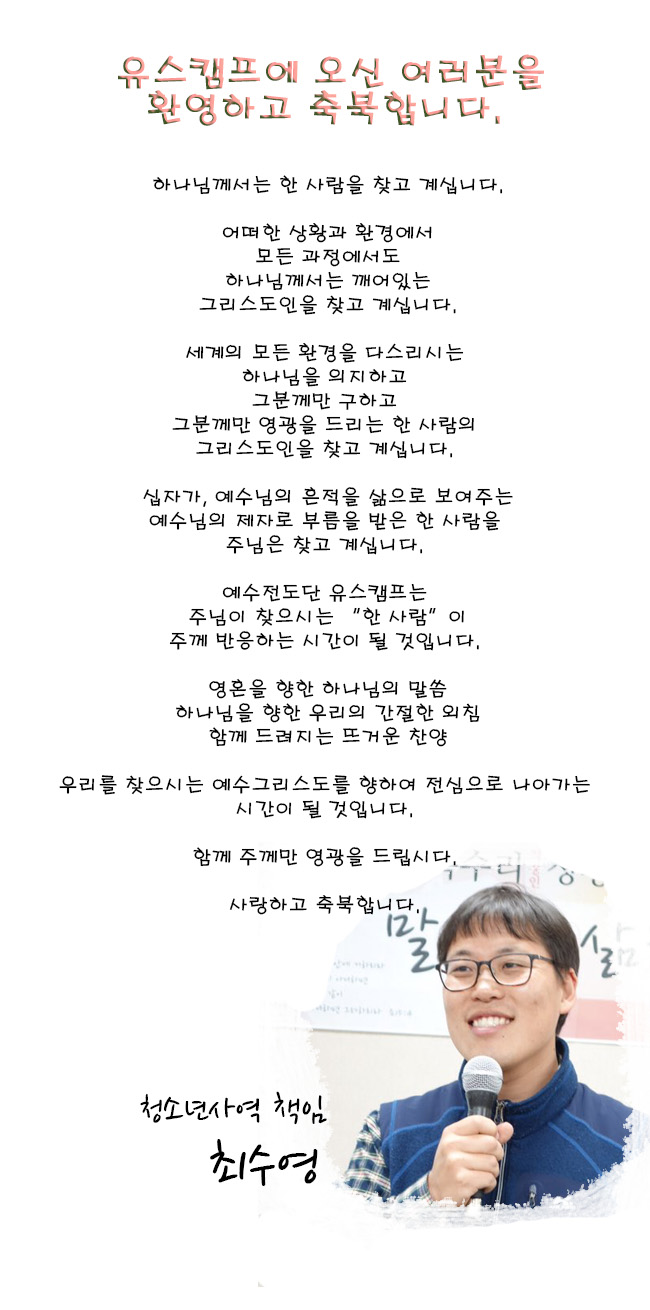 유스캠프에 오신 여러분을
환영하고 축복합니다.
하나님께서는 한 사람을 찾고 계십니다.
어떠한 상황과 환경에서
모든 과정에서도
하나님께서는 깨어있는
그리스도인을 찾고 계십니다.
세계의 모든 환경을 다스리시는
하나님을 의지하고
그분께만 구하고
그분께만 영광을 드리는 한 사람의
그리스도인을 찾고 계십니다.
십자가, 예수님의 흔적을 삶으로 보여주는
예수님의 제자로 부름을 받은 한 사람을
주님은 찾고 계십니다.
예수전도단 유스캠프는
주님이 찾으시는 “한 사람” 이
주께 반응하는 시간이 될 것입니다.
영혼을 향한 하나님의 말씀
하나님을 향한 우리의 간절한 외침
함께 드려지는 뜨거운 찬양
우리를 찾으시는 예수그리스도를 향하여 전심으로 나아가는
시간이 될 것입니다.
함께 주께만 영광을 드립시다.
사랑하고 축복합니다.
말
삶
청소년사역 책임
최수영